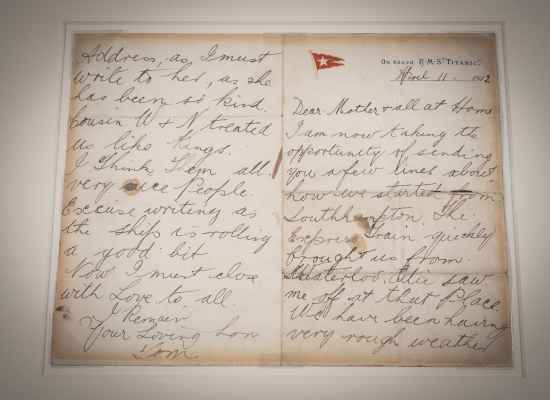 On board R.M.S. "TITANIC."
April 11. 1912
Dear Mother & all at Home
I am now taking the
opportunity of sending
you a few lines about
how we started from
Southhampton. The
Express Train quickly
brought us from
Waterloo. saw
me off at that Place.
We have been having
very rough weather
Address, as I must
write to her, as she
has been so kind.
Cousin W & N treated
us like Kings.
I Think Them all
very nice People.
Excuse writing as
the ship is rolling
a good bit
Now I must close
with Love to all.
I Remain
Your Loving Son
Tom